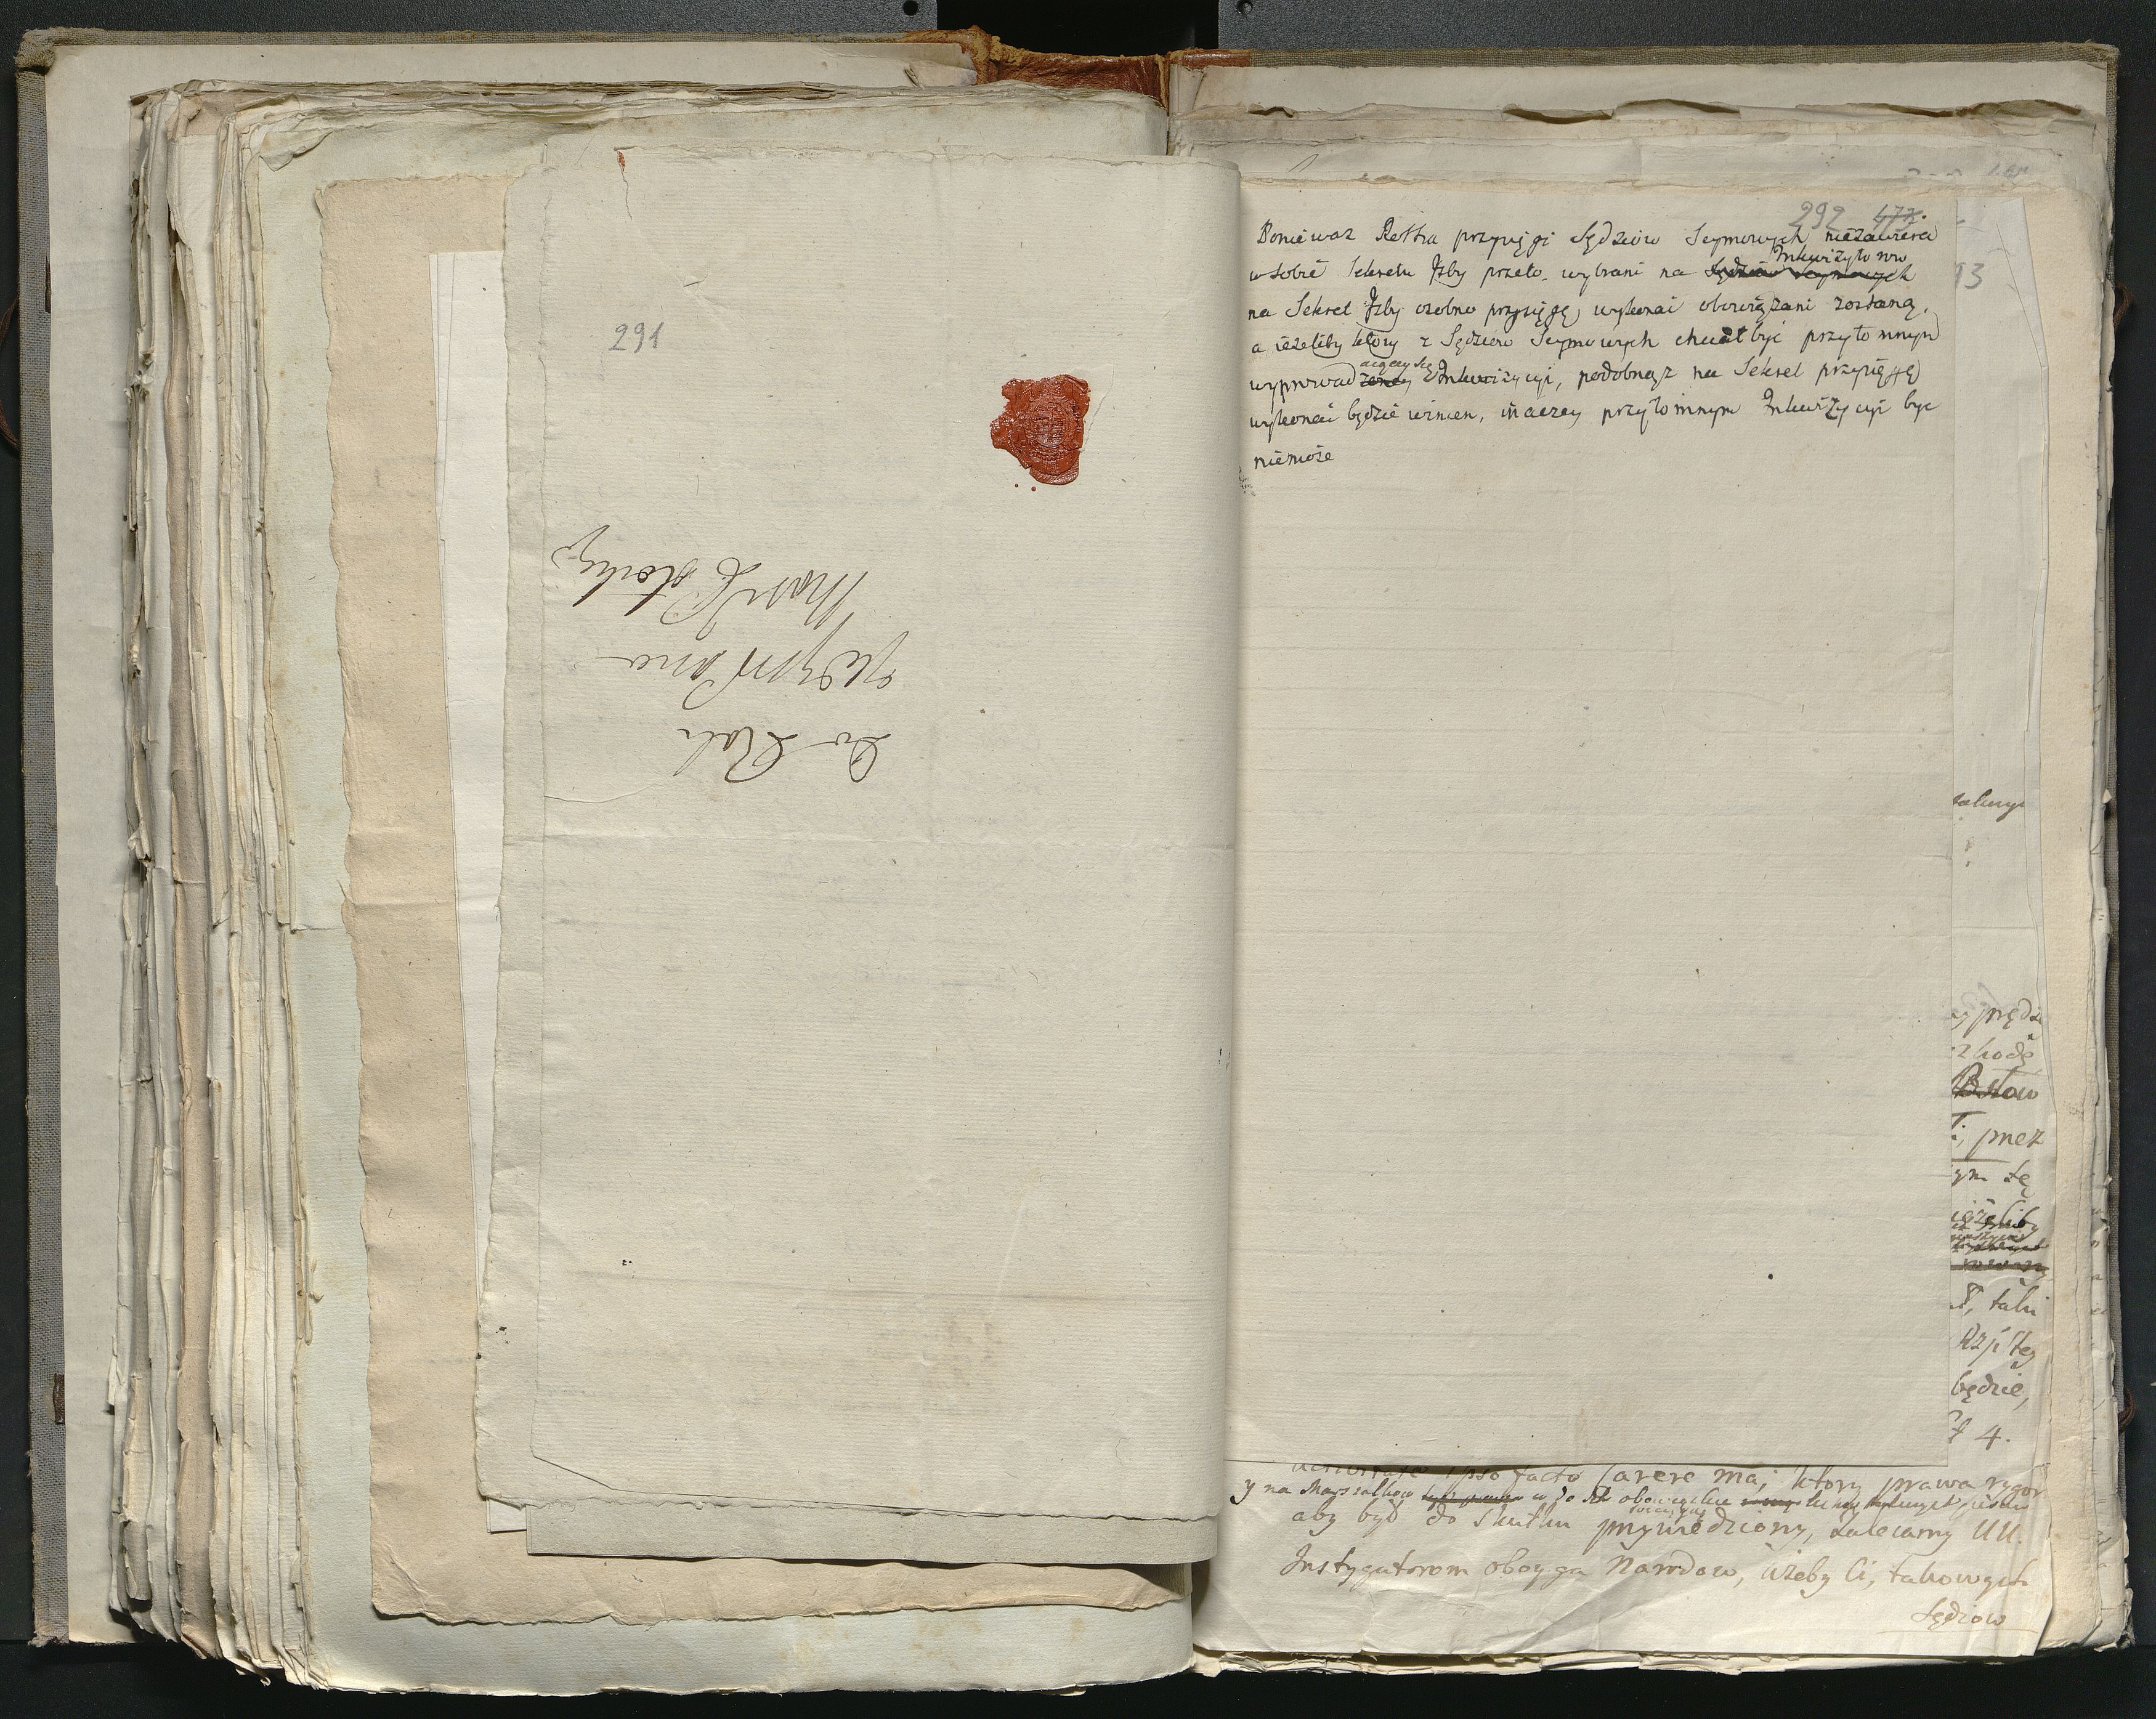 291
Do Rąk
JW Jmć Pana
Mar: Potockiego
292 477.
93
Ponieważ Rotha przysięgi Sędziow Seymowych niezawiera
w sobie Sekretu Izby przeto wybrani na Sędziow Seymowych Inkwizytorow
na Sekret Izby osobno przysięgę wykonać obowiązani zostaną,
a ieżeliby ktory z Sędziow Seymowych chciał być przytomnym
wyprowadzoney aiącey się Inkwizycyi, podobnąż na Sekret przysięgę
wykonać będzie winien, inaczey przytomnym Inkwizycyi byc
niemoże
Bstow
, przez
ym tę
ieżeliby
, taki
Rzpltey
będzie,
4.
ipso facto carere ma; ktory prawa rygor
y na Marszałkow
aby był do skutku przywiedziony, zalecamy UU.
Instygatorom oboyga Narodow, ieżeby Ci, takowych
Sędziow